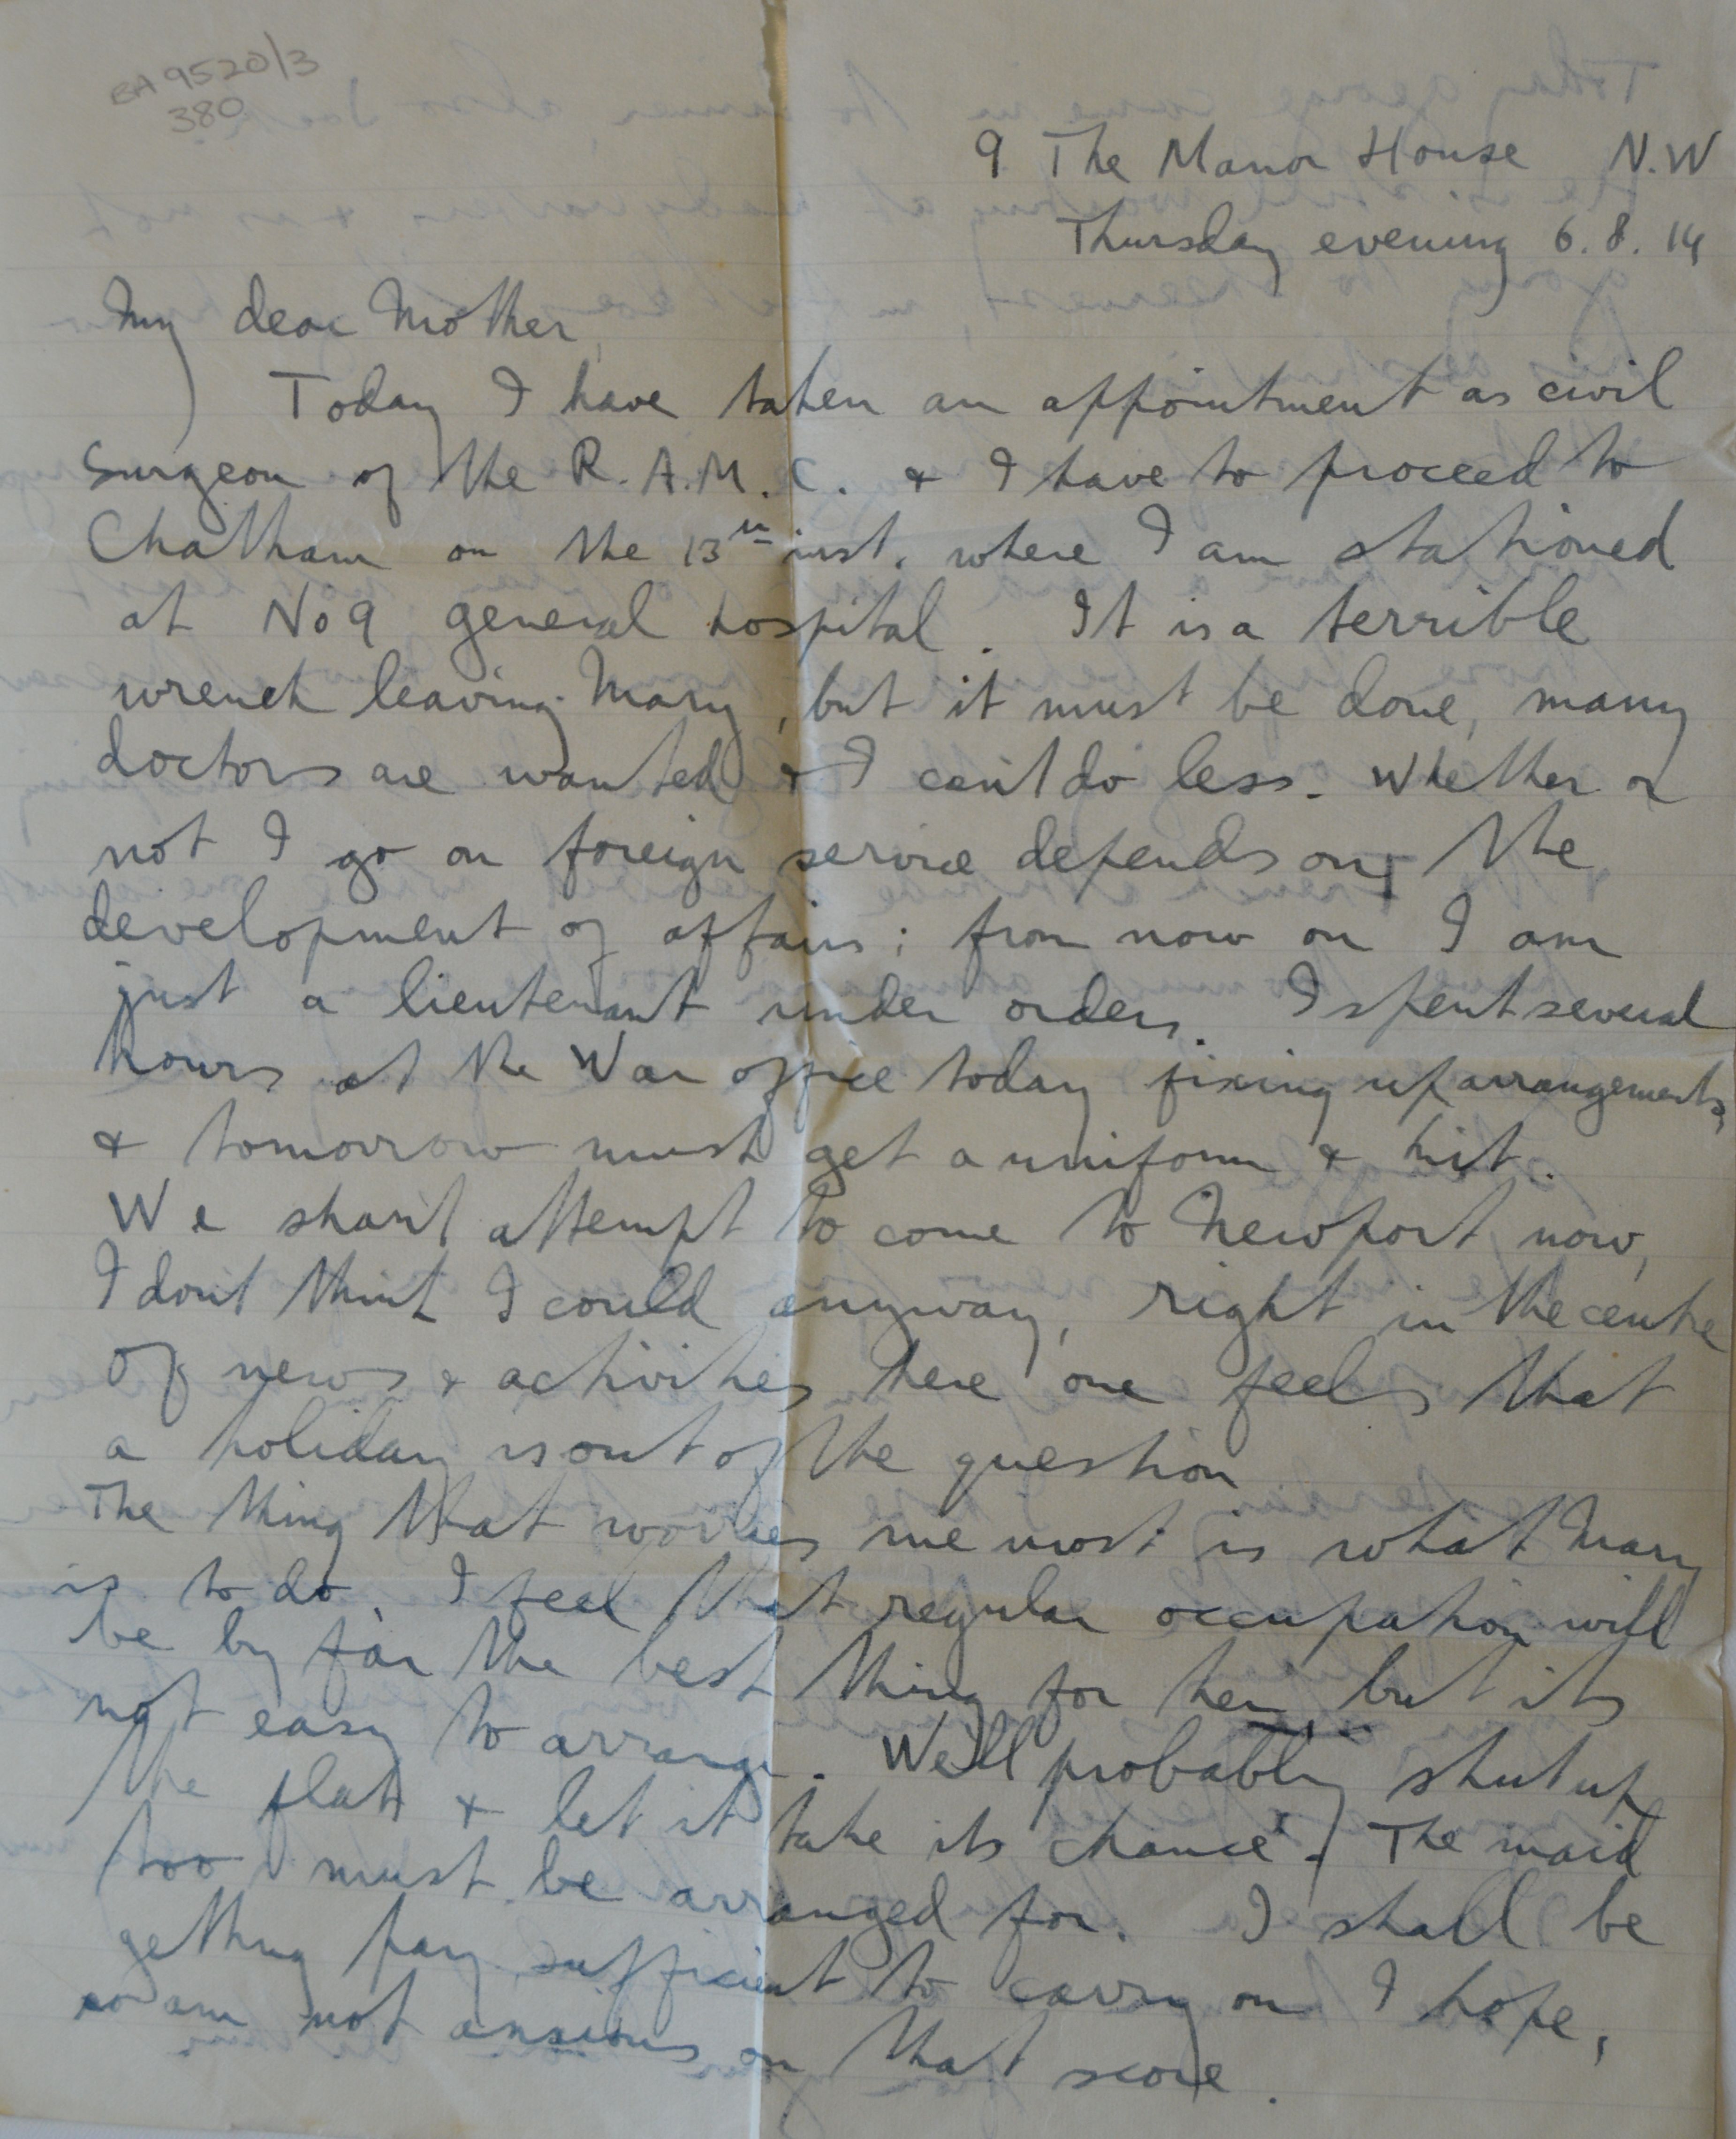 BA 9520/3
380
9 The Manor House N.W
Thursday evening 6.8.14
My dear Mother,
Today I have taken an appointment as civil
surgeon of the R.A.M.C. & I have to proceed to
Chatham on the 13th inst. where I am stationed
at No 9 general hospital. It is a terrible
wrench leaving Mary, but it must be done, many
doctors are wanted & I can't do less. Whether or
not I go on foreign service depends on the
development of affairs; from now on I am
just a lieutenant under orders. I spent several
hours at the War office today fixing up arrangements,
& tomorrow must get a uniform & kit.
We shan't attempt to come to Newport now,
I don't think I could anyway, right in the centre
of news & activities here one feels that
a holiday is out of the question
The thing that worries me most is what Mary
is to do. I feel that regular occupation will
be by far the best thing for her but its
not easy to arrange. We'll probably shut up
the flat & let it take its chance. The maid
too must be arranged for. I shall be
getting pay sufficient to carry on I hope,
so am not anxious on that score.